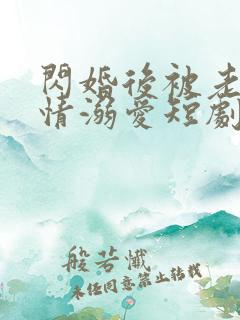 閃婚後被老
情溺愛短劇
般若懺
未任同意禁止转载